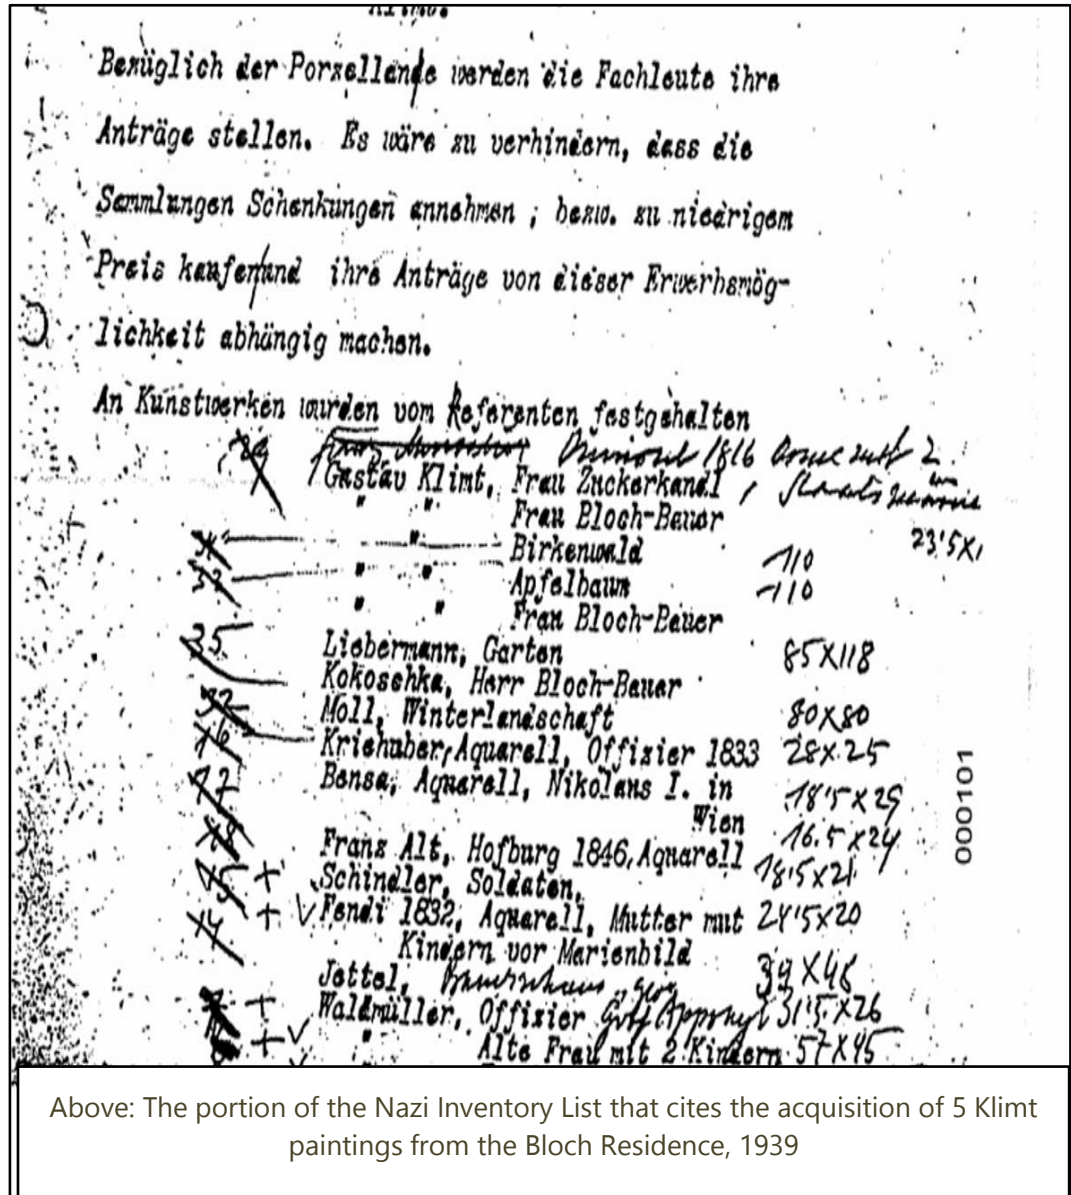 Bezüglich der Porzellane werden die Fachleute ihre
Anträge stellen. Es wäre zu verhindern, dass die
Sammlungen Schenkungen annehmen ; bezw. zu niedrigem
Preis kaufen und ihre Anträge von dieser Erwerbsmög-
lichkeit abhängig machen.
An Kunstwerken wurden vom Referenten festgehalten
1816 2
Gustav Klimt, Frau Zuckerkandl,
" " Frau Bloch-Bauer
" Birkenwald 110 23'5X1
" " Apfelbaum 110
" " Frau Bloch-Bauer
35 Liebermann, Garten 85X118
Kokoschka, Herr Bloch-Bauer
32 Moll, Winterlandschaft 80X80
16 Kriehuber, Aquarell, Offizier 1833 28X25
17 Bensa, Aquarell, Nikolaus I. in 18'5X29
Wien 16.5X24
18 Franz Alt, Hofburg 1846, Aquarell 18'5X21
15 + Schindler, Soldaten,
14 + V Fendi 1832, Aquarell, Mutter mut 24'5X20
Kindern vor Marienbild
Jettel, 39X48
+ Waldmüller, Offizier Graf Apponyi 31'5X26
+ V " Alte Frau mit 2 Kindern 57X45
000101
Above: The portion of the Nazi Inventory List that cites the acquisition of 5 Klimt
paintings from the Bloch Residence, 1939